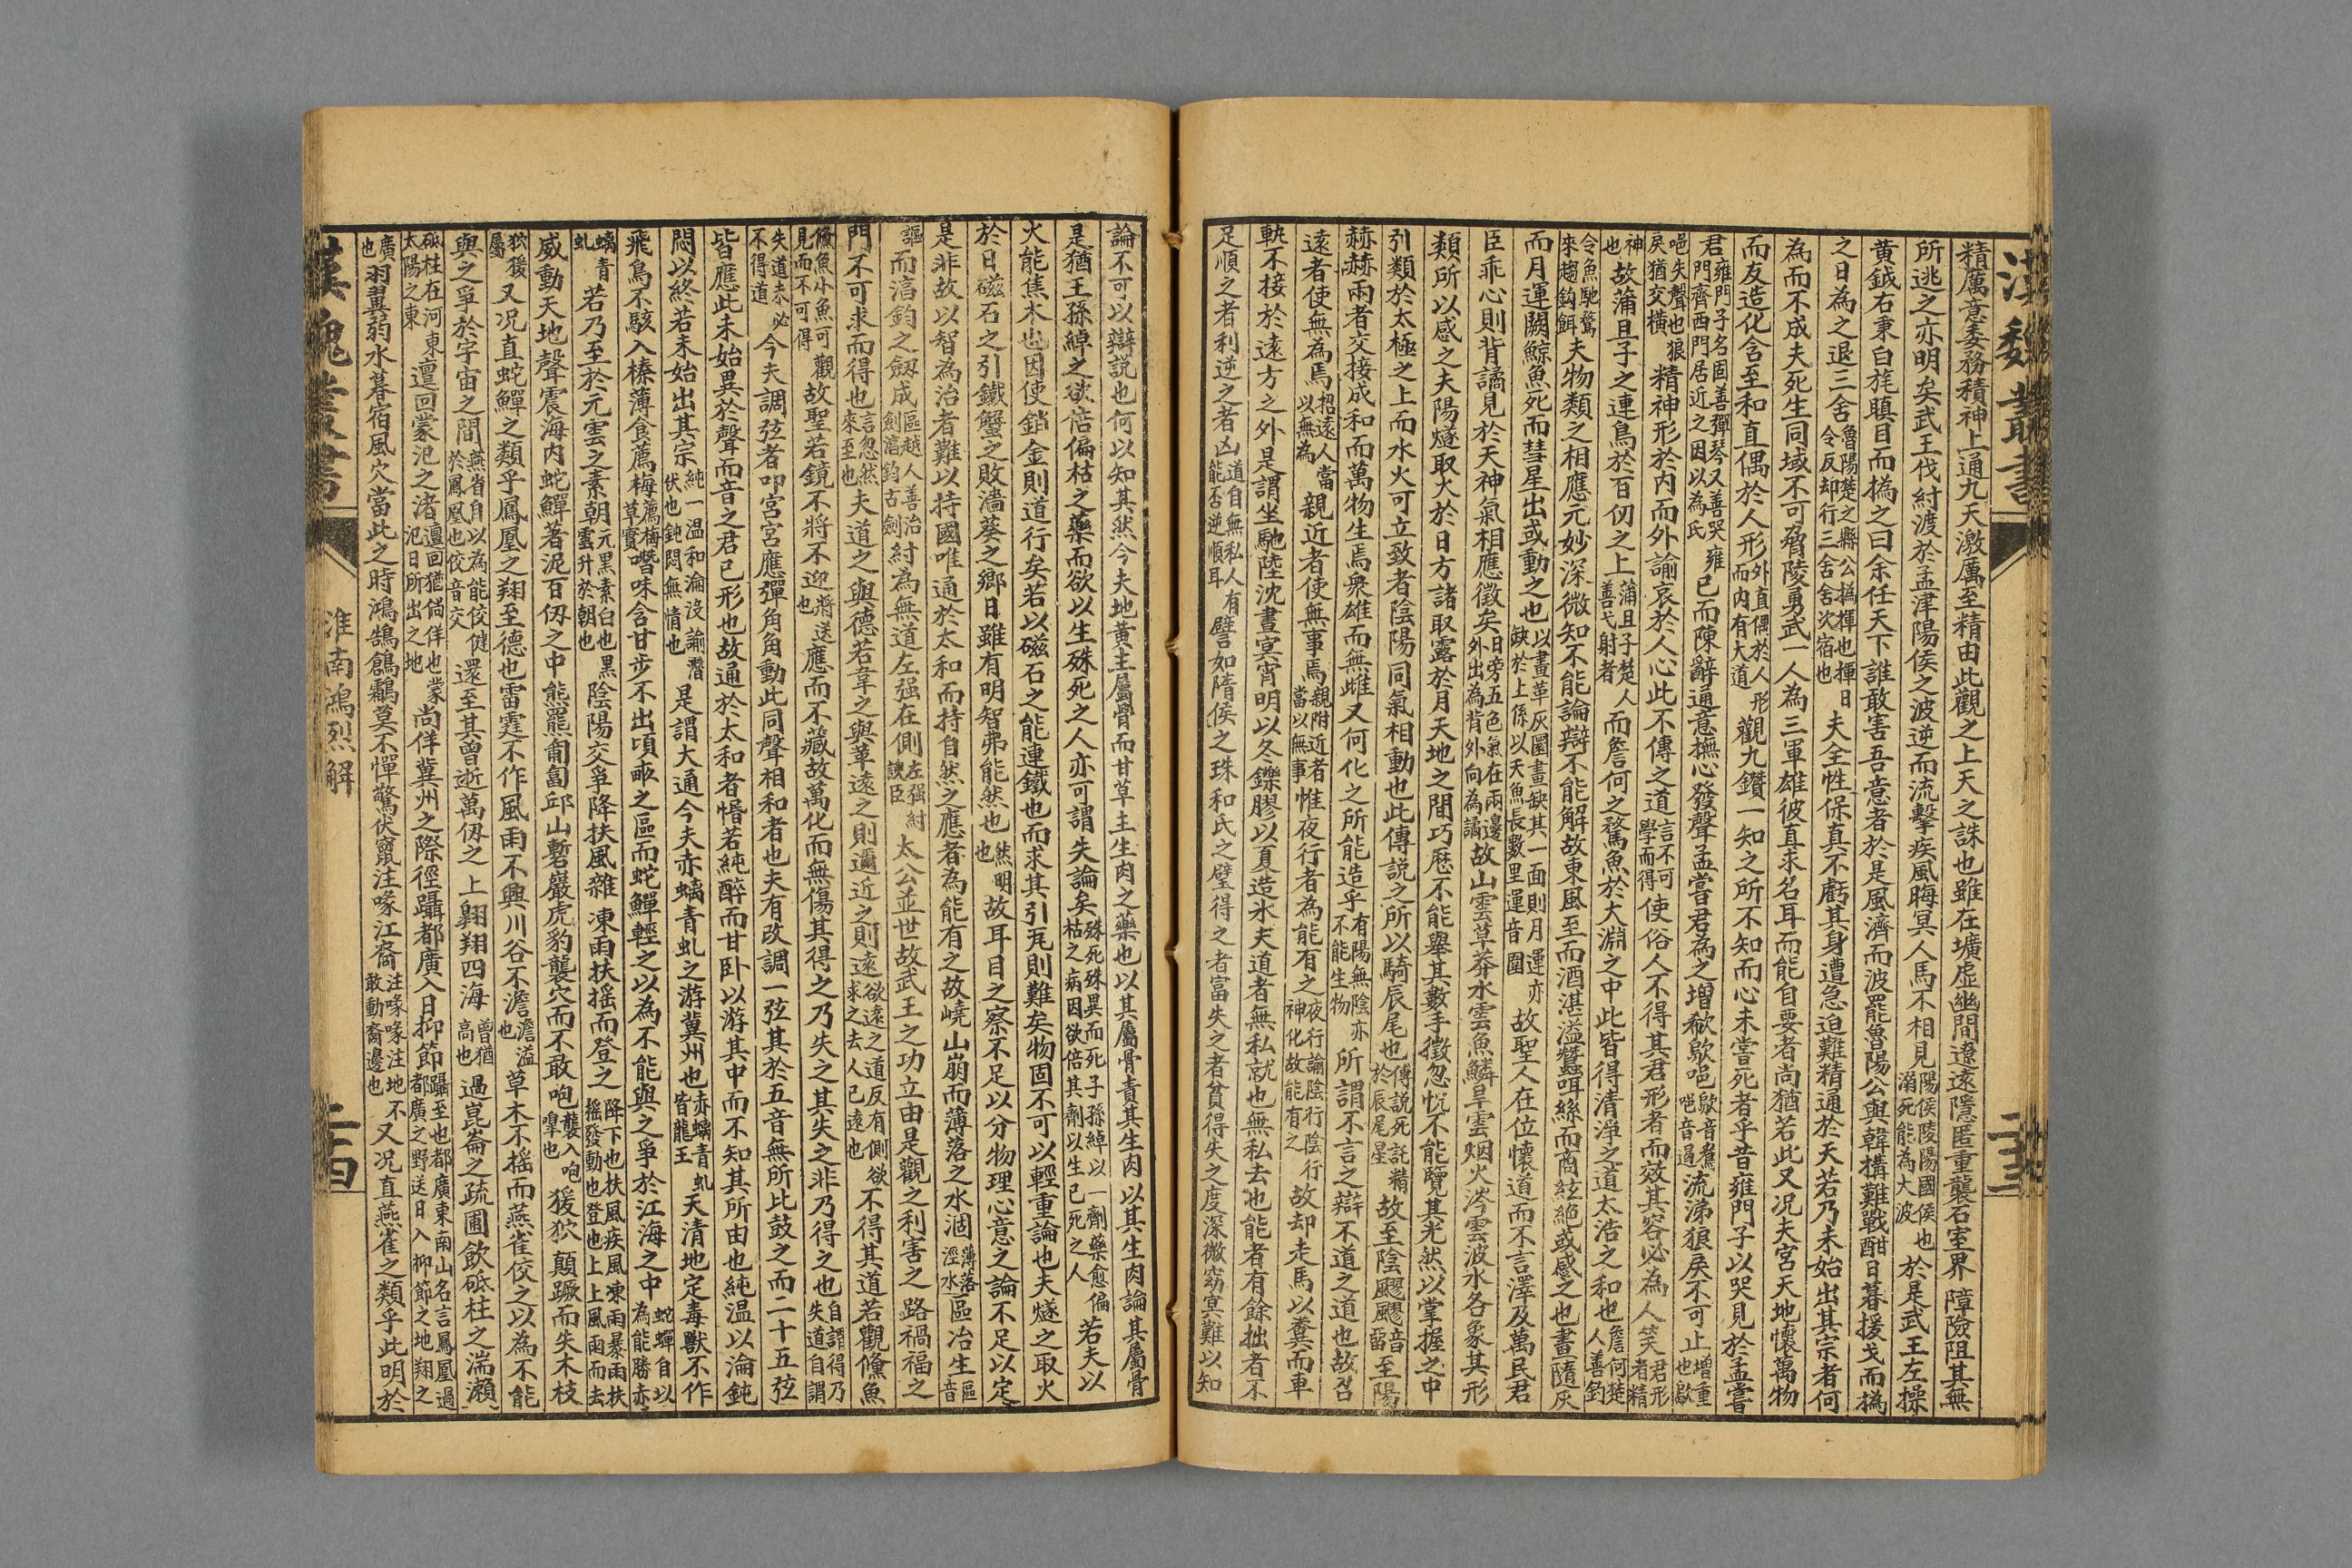 漢魏叢書
二十三
精厲意委務積神上通九天激厲至精由此觀之上天之誅也雖在壙虛幽間遼遠隱匿重襲石室界障險阻其無
所逃之亦明矣武王伐紂渡於孟津陽侯之波逆而流擊疾風晦冥人馬不相見陽侯陵陽國侯也溺死能為大波於是武王左操
黃鉞右秉白旄瞋目而撝之曰余任天下誰敢害吾意者於是風濟而波罷魯陽公與韓搆難戰酣日暮援戈而撝
之日為之退三舍魯陽楚之縣公撝揮也揮日令反却行三舍舍次宿也夫全性保真不虧其身遭急迫難精通於天若乃未始出其宗者何
為而不成夫死生同域不可脅陵勇武一人為三軍雄彼直求名耳而能自要者尚猶若此又况夫宮天地懷萬物
而友造化含至和直偶於人形外直偶於人形而內有大道觀九鑽一知之所不知而心未嘗死者乎昔雍門子以哭見於孟嘗
君雍門子名固善彈琴又善哭雍門齊西門居近之因以為氏已而陳辭通意撫心發聲孟嘗君為之增欷歍唈歍音鴦唈音過流涕狼戾不可止增重也歍
唈失聲也狼戾猶交橫精神形於內而外諭哀於人心此不傳之道言不可學而得使俗人不得其君形者而效其容必為人笑君形者精
神也故蒲且子之連鳥於百仞之上蒲且子楚人善弋射者而詹何之騖魚於大淵之中此皆得清淨之道太浩之和也詹何楚人善釣
令魚馳騖來趨鈎餌夫物類之相應元妙深微知不能論辯不能解故東風至而酒湛溢蠶咡絲而商絃絶或感之也畫隨灰
而月運闕鯨魚死而彗星出或動之也以畫革灰圜畫缺其一面則月運亦缺於上係以天魚長數里運音圜故聖人在位懷道而不言澤及萬民君
臣乖心則背譎見於天神氣相應徵矣日旁五色氣在兩邊外出為背外向為譎故山雲草莽水雲魚鱗旱雲烟火涔雲波水各象其形
類所以感之夫陽燧取火於日方諸取露於月天地之間巧歷不能舉其數手徵忽怳不能覽其光然以掌握之中
引類於太極之上而水火可立致者陰陽同氣相動也此傳説之所以騎辰尾也傅説死託精於辰尾星故至陰飂飂音畱至陽
赫赫兩者交接成和而萬物生焉衆雄而無雌又何化之所能造乎有陽無陰亦不能生物所謂不言之辯不道之道也故召
遠者使無為焉招遠人當以無為親近者使無事焉親附近者當以無事惟夜行者為能有之夜行諭陰行陰行神化故能有之故却走馬以糞而車
軌不接於遠方之外是謂坐馳陸沈晝冥宵明以冬鑠膠以夏造氷夫道者無私就也無私去也能者有餘拙者不
足順之者利逆之者凶道自無私人有能否逆順耳譬如隋侯之珠和氏之璧得之者富失之者貧得失之度深微窈冥難以知
論不可以辯説也何以知其然今夫地黃主屬骨而甘草主生肉之藥也以其屬骨責其生肉以其生肉論其屬骨
是猶王孫綽之欲倍偏枯之藥而欲以生殊死之人亦可謂失論矣殊死殊異而死子孫綽以一劑藥愈偏枯之病因欲倍其劑以生已死之人若夫以
火能焦木也因使銷金則道行矣若以磁石之能連鐵也而求其引瓦則難矣物固不可以輕重論也夫燧之取火
於日磁石之引鐵蟹之敗漆葵之鄉日雖有明智弗能然也然明也故耳目之察不足以分物理心意之論不足以定
是非故以智為治者難以持國唯通於太和而持自然之應者為能有之故嶢山崩而薄落之水涸薄落涇水區冶生區音
謳而湻鈞之劔成區越人善治劍湻鈞古劍紂為無道左强在側左强紂諛臣太公並世故武王之功立由是觀之利害之路禍福之
門不可求而得也言忽然來至也夫道之與德若韋之與革遠之則邇近之則遠欲遠之道反有側欲求之去人已遠也不得其道若觀鯈魚
鯈魚小魚可見而不可得觀故聖若鏡不將不迎將送也應而不藏故萬化而無傷其得之乃失之其失之非乃得之也自謂得乃失道自謂
失道未必不得道今夫調弦者叩宮宮應彈角角動此同聲相和者也夫有改調一弦其於五音無所比鼓之而二十五弦
皆應此未始異於聲而音之君已形也故通於太和者惛若純醉而甘卧以游其中而不知其所由也純温以淪鈍
悶以終若未始出其宗純一温和淪沒諭潛伏也鈍悶無情也是謂大通今夫赤螭青虬之游冀州也赤螭青虬皆龍王天清地定毒獸不作
飛鳥不駭入榛薄食薦梅薦梅草實噆味含甘步不出頃畞之區而蛇鱓輕之以為不能與之爭於江海之中蛇蟬自以為能勝赤
螭青虬若乃至於元雲之素朝元黑素白也黑雲升於朝也陰陽交爭降扶風雜凍雨扶搖而登之降下也扶風疾風凍雨暴雨扶搖發動也登也上上風雨而去
威動天地聲震海內蛇鱓著泥百仞之中熊羆匍匐邱山磛巖虎豹襲穴而不敢咆襲入咆嘷也猨狖顛蹶而失木枝
狖猨屬又况直蛇鱓之類乎鳳凰之翔至德也雷霆不作風雨不興川谷不澹澹溢也草木不搖而燕雀佼之以為不能
與之爭於宇宙之間燕雀自以為能佼健於鳳凰也佼音交還至其曾逝萬仞之上翺翔四海曾猶高也過崑崙之疏圃飲砥柱之湍瀨
砥柱在河東太陽之東邅回蒙汜之渚邅回猶倘佯也蒙汜日所出之地尚佯冀州之際徑躡都廣入日抑節躡至也都廣東南山名言鳳凰過都廣之野送日入抑節之地翔之
廣也羽翼弱水暮宿風穴當此之時鴻鵠鶬鸖莫不憚驚伏竄注喙江裔注喙喙注地不敢動裔邊也又况直燕雀之類乎此明於
漢魏叢書
淮南鴻烈解
二十四